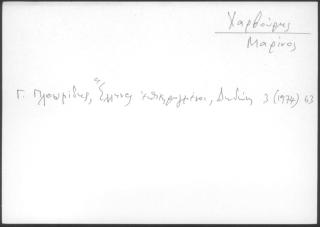 Χαρβούρης
Μαρίνος
Γ. Πλουμίδης, Ἕλληνες ἐπικηρυγμένοι, Δωδώνη 3 (1974) 63